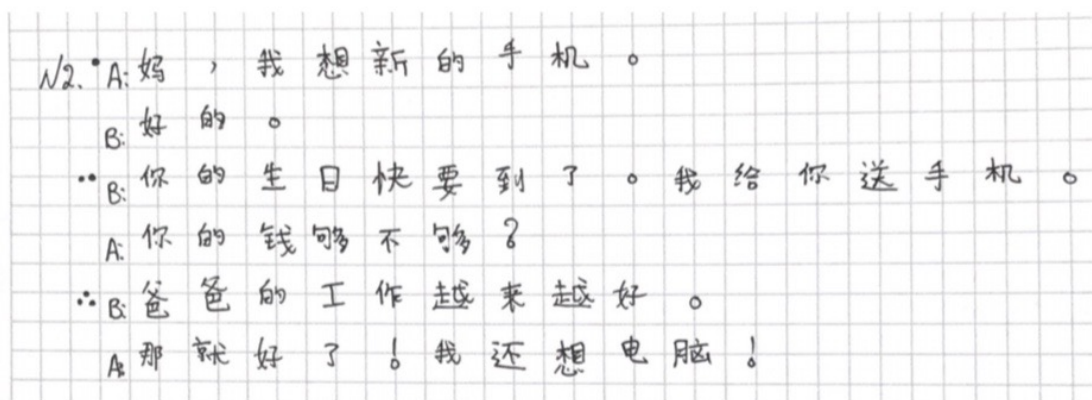 №2. • A: 妈，我想新的手机。
B: 好的。
•• B: 你的生日快要到了。我给你送手机。
A: 你的钱够不够？
∴ B: 爸爸的工作越来越好。
A: 那就好了！我还想电脑！